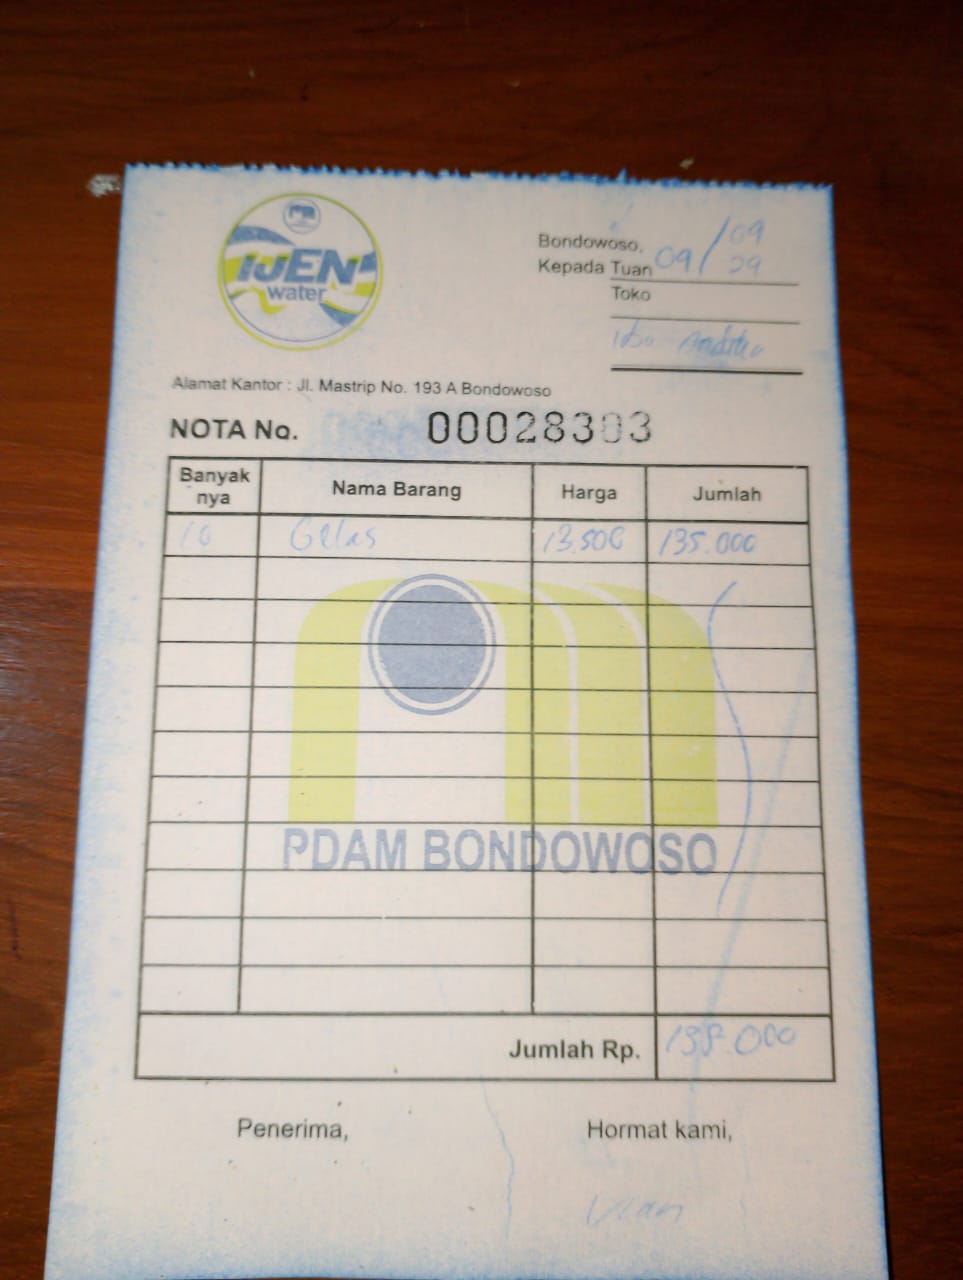 IJEN
water
Bondowoso, 09/09
Kepada Tuan
Toko
Ibu
Alamat Kantor : Jl. Mastrip No. 193 A Bondowoso
NOTA No. 00028303
Banyak nya Nama Barang Harga Jumlah
10 Gelas 13.500 135.000
PDAM BONDOWOSO
Jumlah Rp. 135.000
Penerima, Hormat kami,